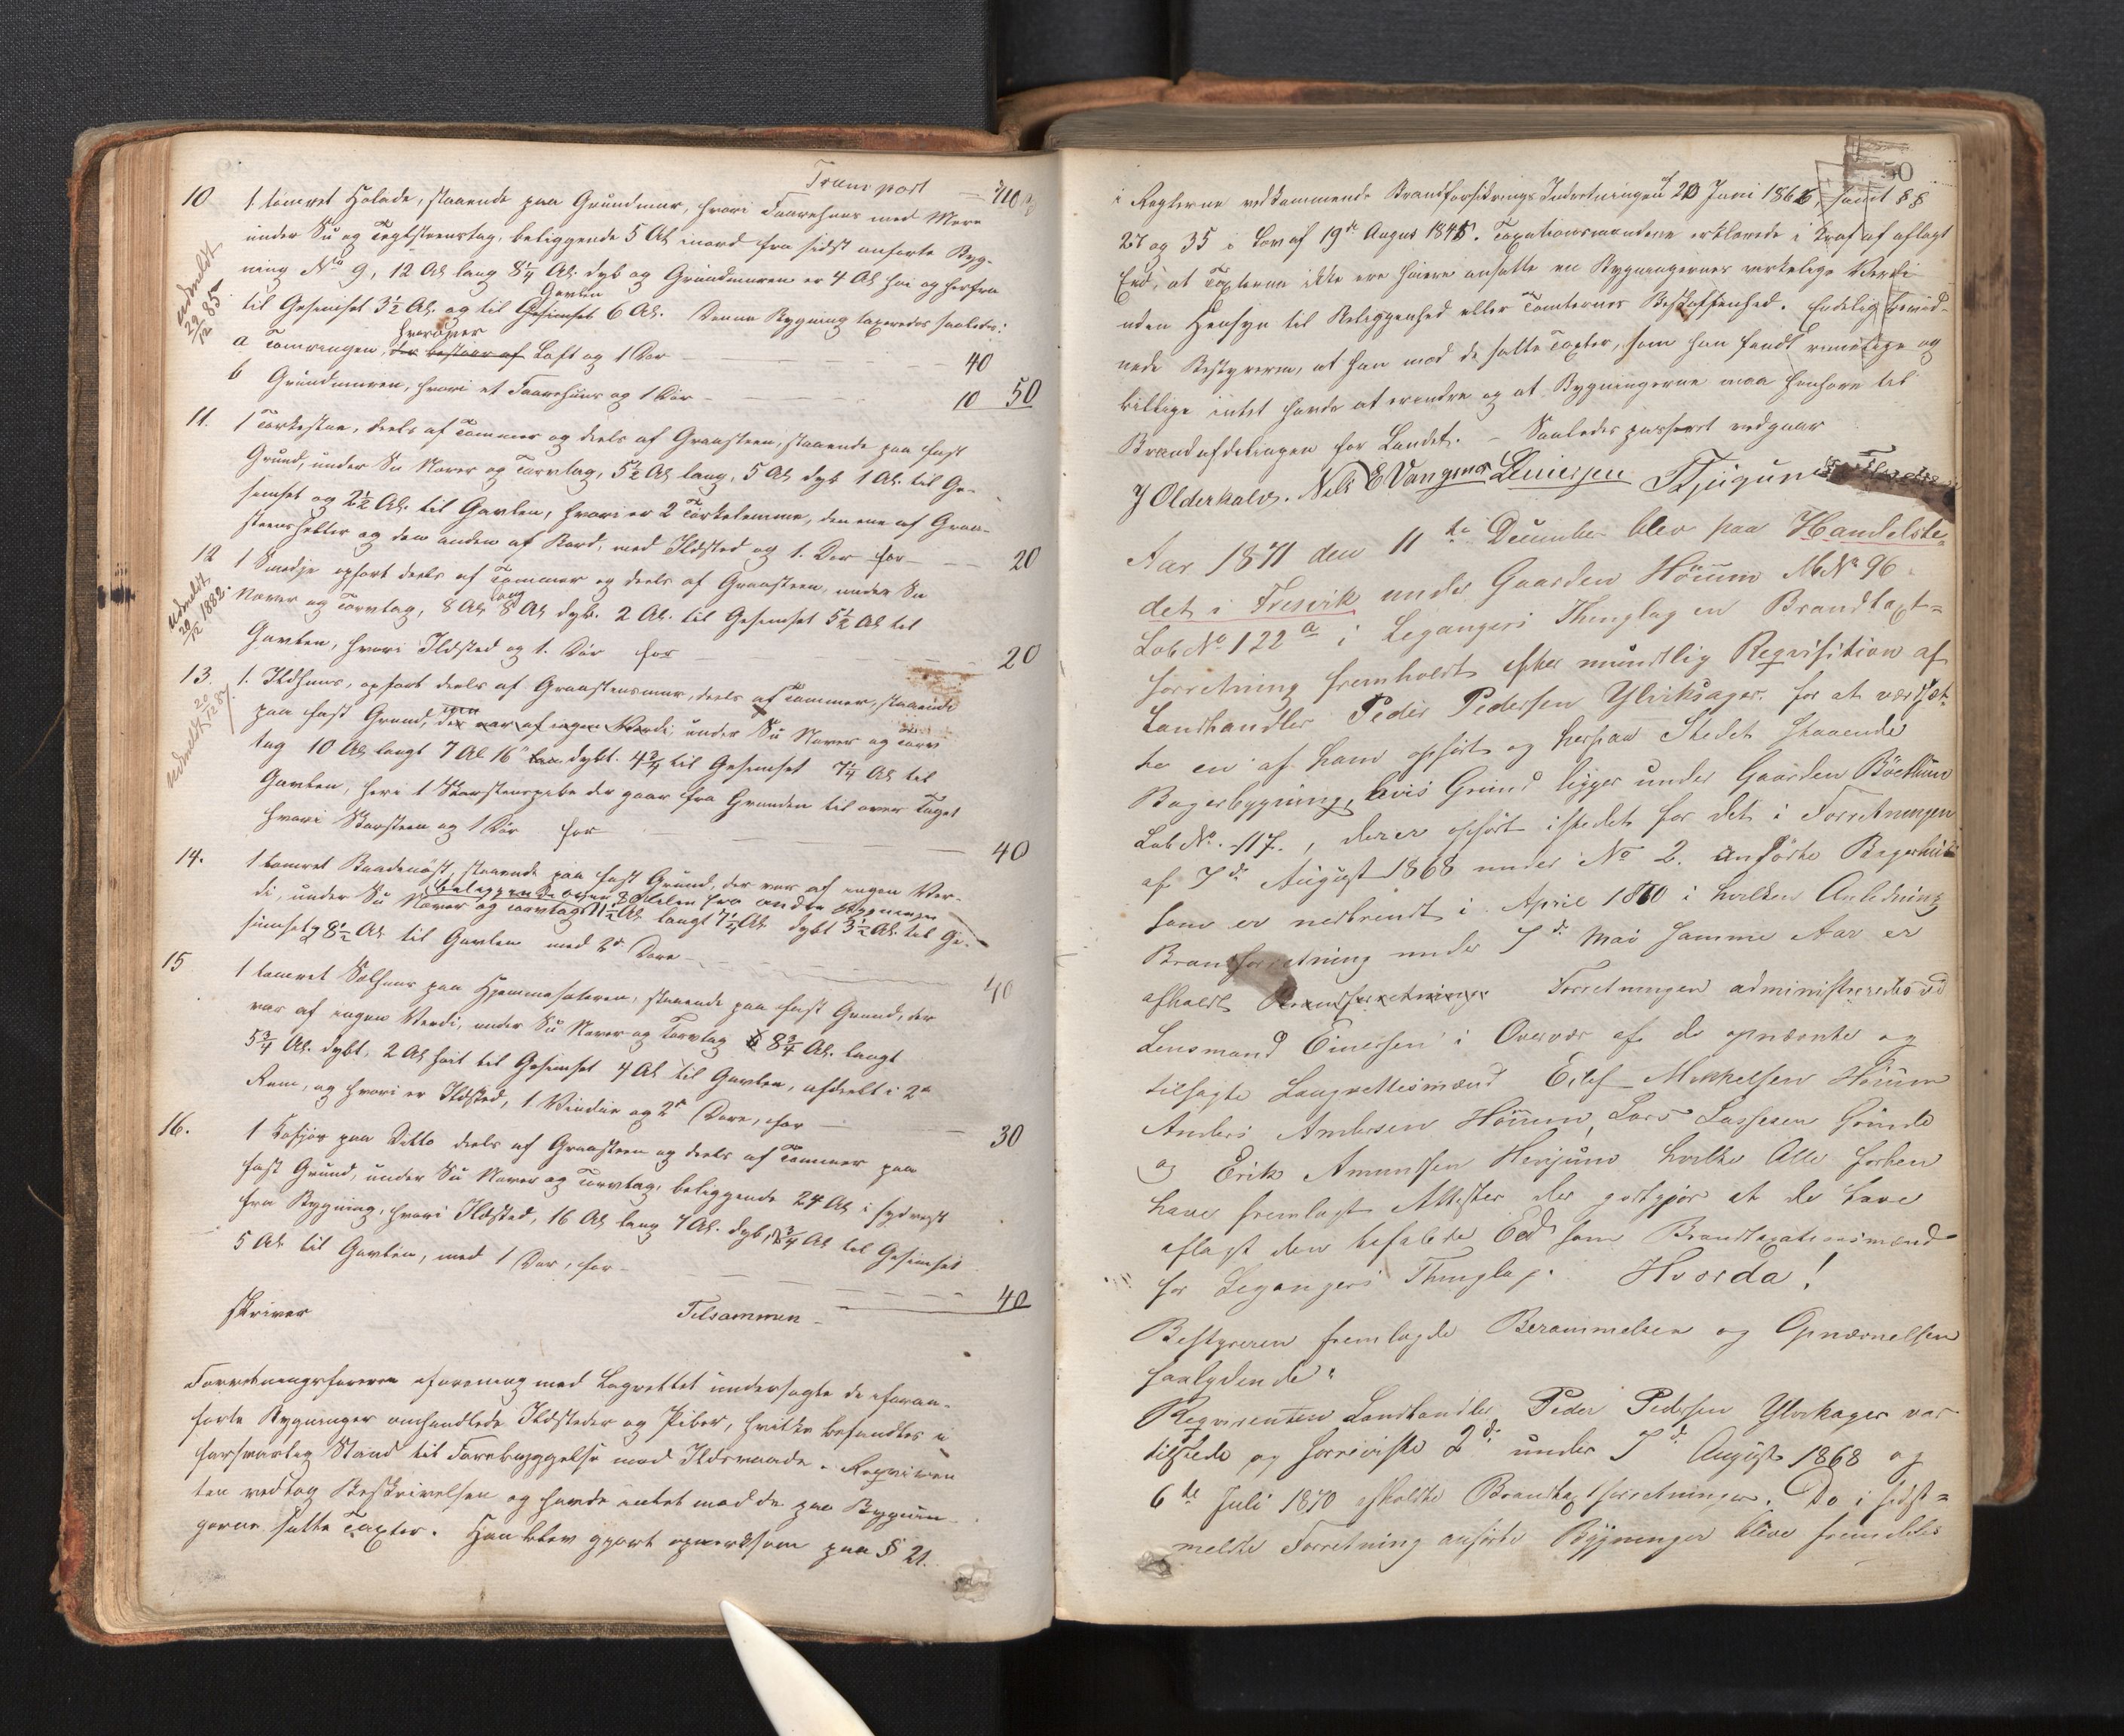 Transport — 710
10 1 tømret Hølade, staaende paa Grundmur, hvori Faarehuus med Mere
under Su og Teglsteenstag, beliggende 5 Al. inord fra sidst anførte Byg-
ning No 9, 12 Al. lang 8 1/4 Al. dyb og Grundmuren er 4 Al. høi og herfra
til Gesimset 3 1/2 Al. og til Gavlen 6 Al. Denne Bygning taxeredes saaledes:
a Tømringen, hvorover Loft og 1 Dør — 40
b Grundmuren, hvori et Faarehuus og 1 Dør — 10 50
Udmeldt 29/12 85
11. 1 Tørkestue, deels af Tømmer og deels af Graasteen, staaende paa fast
Grund, under Su Næver og Torvtag, 5 1/2 Al. lang, 5 Al. dyb 1 Al. til Ge-
simset og 2 1/2 Al. til Gavlen, hvori er 2 Tørkelemme, den ene af Graa-
steensheller og den anden af Bord, med Ildsted og 1. Dør for — 20
12 1 Smedje opført deels af Tømmer og deels af Graasteen, under Su
Næver og Torvtag, 8 Al. lang 8 Al. dyb. 2 Al. til Gesimset 5 1/2 Al. til
Gavlen, hvori Ildsted og 1. Dør for — 20
Udmeldt 20/12 1882.
13. 1. Ildhuus, opført deels af Graasteensmur, deels af Tømmer, staaende
paa fast Grund, der var af ingen Værdi, under Su Næver og Torv
tag 10 Al. langt 7 Al. 16" dybt. 4 3/4 til Gesimset 7 1/4 Al. til
Gavlen, heri 1 Skorsteenspibe der gaar fra Grunden til over Taget
hvori Skorsteen og 1 Dør for — 40
Udmeldt 20/12 87.
14. 1 tømret Baadenøst, staaende paa fast Grund, der var af ingen Vær-
beliggende over 30 Alen fra andre Bygninger
di, under Su Næver og Torvtag 11 1/2 Al. langt 7 1/4 Al. dybt 3 1/2 Al. til Ge-
simset og 8 1/2 Al. til Gavlen med 2de Døre — 40
15 1 tømret Sælhuus paa Hjemmesæteren, staaende paa fast Grund, der
var af ingen Værdi, under Su Næver og Torvtag 8 3/4 Al. langt
5 3/4 Al. dybt, 2 Al. høit til Gesimset 4 Al. til Gavlen, afdeelt i 2de
Rum, og hvori er Ildsted, 1 Vindue og 2de Døre, for — 30
16. 1 Køfjøs paa Ditto deels af Graasteen og deels af Tømmer paa
fast Grund, under Su Næver og Torvtag, beliggende 24 Al. i sydvest
fra Bygning, hvori Ildsted, 16 Al. lang 7 Al. dyb, 3/4 Al. til Gesimset
5 Al. til Gavlen, med 1 Dør, for — 40
skriver Tilsammen —
Forretningsføreren i forening med Lagrettet undersøgte de foran-
førte Bygninger omhandlede Ildsteder og Piber, hvilke befandtes i
forsvarlig Stand til Forebyggelse mod Ildsvaade. Reqviren
ten vedtog Beskrivelsen og havde intet mod de paa Bygnin-
gerne satte Taxter. Han blev gjort opmærksom paa § 21.
50
i Reglerne vedkommende Brandforsikrings Indretningen af 20 Juni 1866, samt §§
27 og 35 i Lov af 19de August 1845. Taxationsmændene erklærede i Kraf af aflagt
Eed, at Taxterne ikke ere høiere ansatte en Bygningernes virkelige Værdi
uden Hensyn til Beliggenhed eller Tomternes Beskaffenhed. Endelig bevid-
nede Bestyreren, at han mod de satte Taxter, som han fandt rimelige og
billige intet havde at erindre og at Bygningerne maa henføre til
Brandafdelingen for Landet. — Saaledes passeret vedgaar
J Olderhalv. Nils E Vangsnes Einersen
Aar 1871 den 11te December blev paa Handelste-
det i Fresvik under Gaarden Høium M No 96
Løb No 122a i Legangers Thinglag en Brandtaxt-
forretning fremholdt efter mundtlig Reqvisition af
Landhandler Peder Pedersen Ylvisager for at værdsæt-
te en af ham opført og herpaa Stedet staaende
Bagerbygning, hvis Grund ligger under Gaarden Bøethun
Løb No. 117., der er opført istedet for det i Forretningen
af 7de August 1868 under No 2. anførte Bagerhuus
som er nedbrendt i April 1870 i hvilken Anledning
Brandforretning under 7de Mai samme Aar er
afholdt Brandforretninge. Forretningen administreredes ved
Lensmand Einersen i Overvær af de opnævnte og
tilsagte Laugrettesmænd Eilef Mikkelsen Høium
Anders Andersen Høium, Lars Lassesen Grinde
og Erik Amundsen Henjum hvilke Alle forhen
have fremlagt Attester der godtgjør at de have
aflagt den befalede Eed som Brandtaxationsmænd
for Legangers Thinglag. Hvorda!
Bestyreren fremlagde Berammelsen og Opnævnelsen
saalydende:
Reqvirenten Landhandler Peder Pedersen Ylvisager var
tilstede og foreviste 2de under 7de August 1868 og
6te Juli 1870 afholdte Brandtaxtforretninger. De i sidst-
meldte Forretning anførte Bygninger blive fremdeles